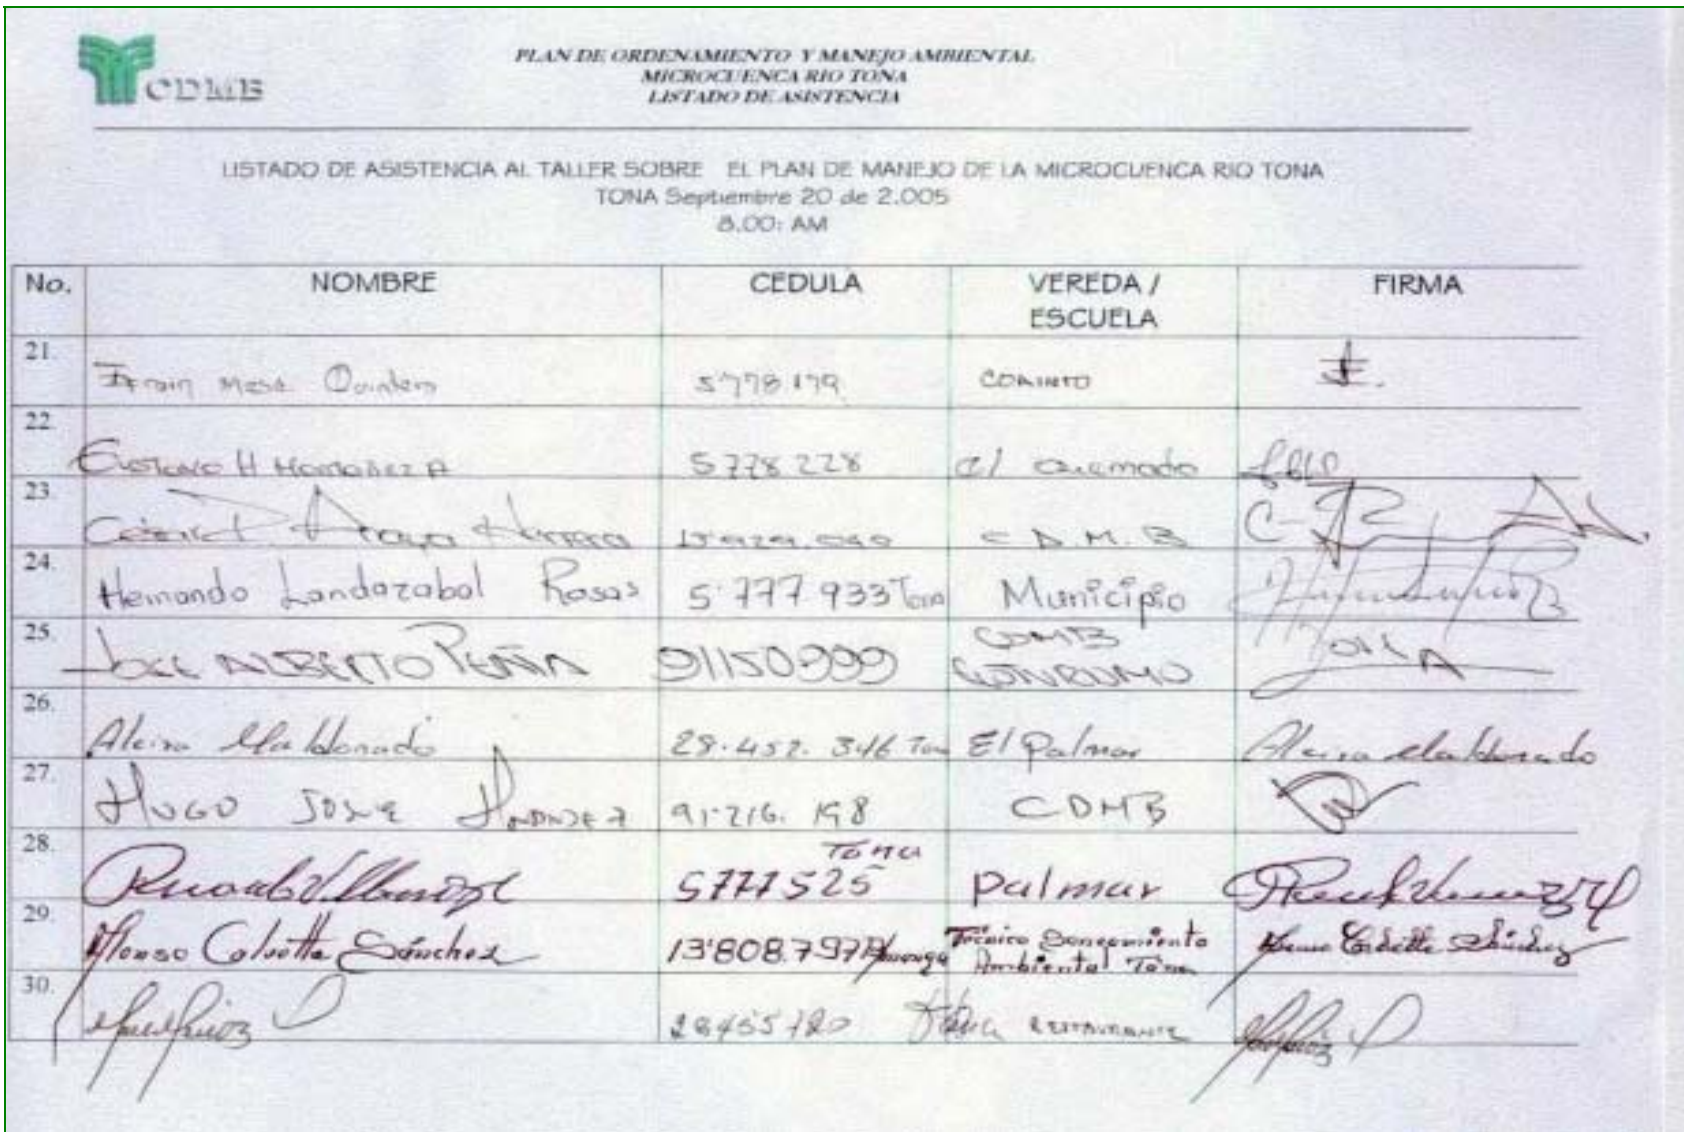 CDMB
PLAN DE ORDENAMIENTO Y MANEJO AMBIENTAL
MICROCUENCA RIO TONA
LISTADO DE ASISTENCIA
LISTADO DE ASISTENCIA AL TALLER SOBRE EL PLAN DE MANEJO DE LA MICROCUENCA RIO TONA
TONA Septiembre 20 de 2.005
8.00: AM
No. NOMBRE CEDULA VEREDA / ESCUELA FIRMA
21. Efrain Mesa Quintero 5'778.179 CORINTO
22. H 5778228 el Quemado
23. Araya Herrera C.D.M.B
24. Hernando Landazabal Rosas 5'777.933 Tona Municipio
25. JOSE ALBERTO PEÑA 91150999 CDMB
26. Alcira Maldonado 28.452.346 Tona El Palmar Alcira Maldonado
27. HUGO JOSE 91'216.198 CDMB
28. 5777525 Tona palmar
29. Alfonso Sánchez 13'808.797 Técnico Saneamiento Ambiental Tona Sánchez
30. 28455120 RESTAURANTE